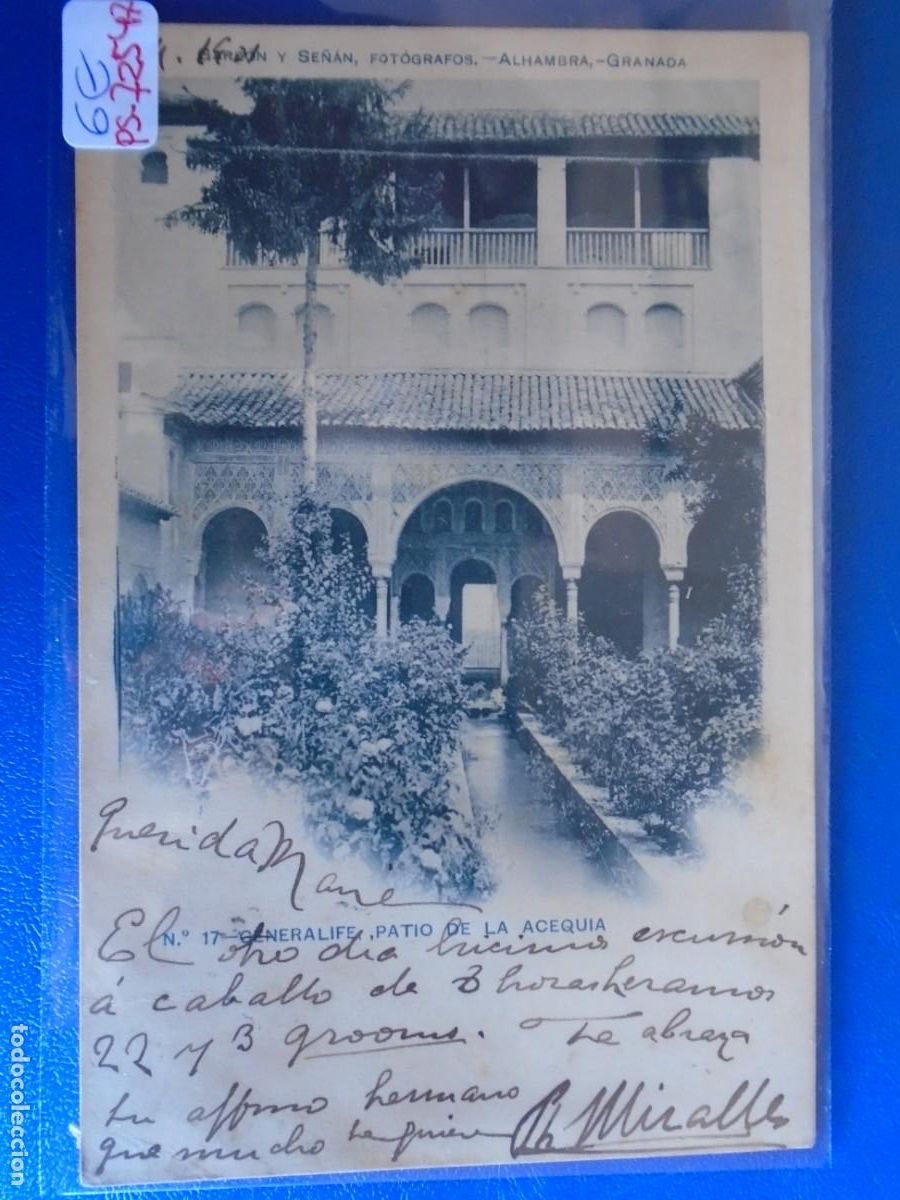 6€
PS-72547
Y SEÑÁN, FOTÓGRAFOS.—ALHAMBRA,—GRANADA
Querida
N.º 17—GENERALIFE, PATIO DE LA ACEQUIA
El otro dia hicimos excursión
á caballo de 3 horas heramos
22 y 3 grooms. Te abraza
tu affmo hermano
que mucho te quiere Miralles
todocoleccion